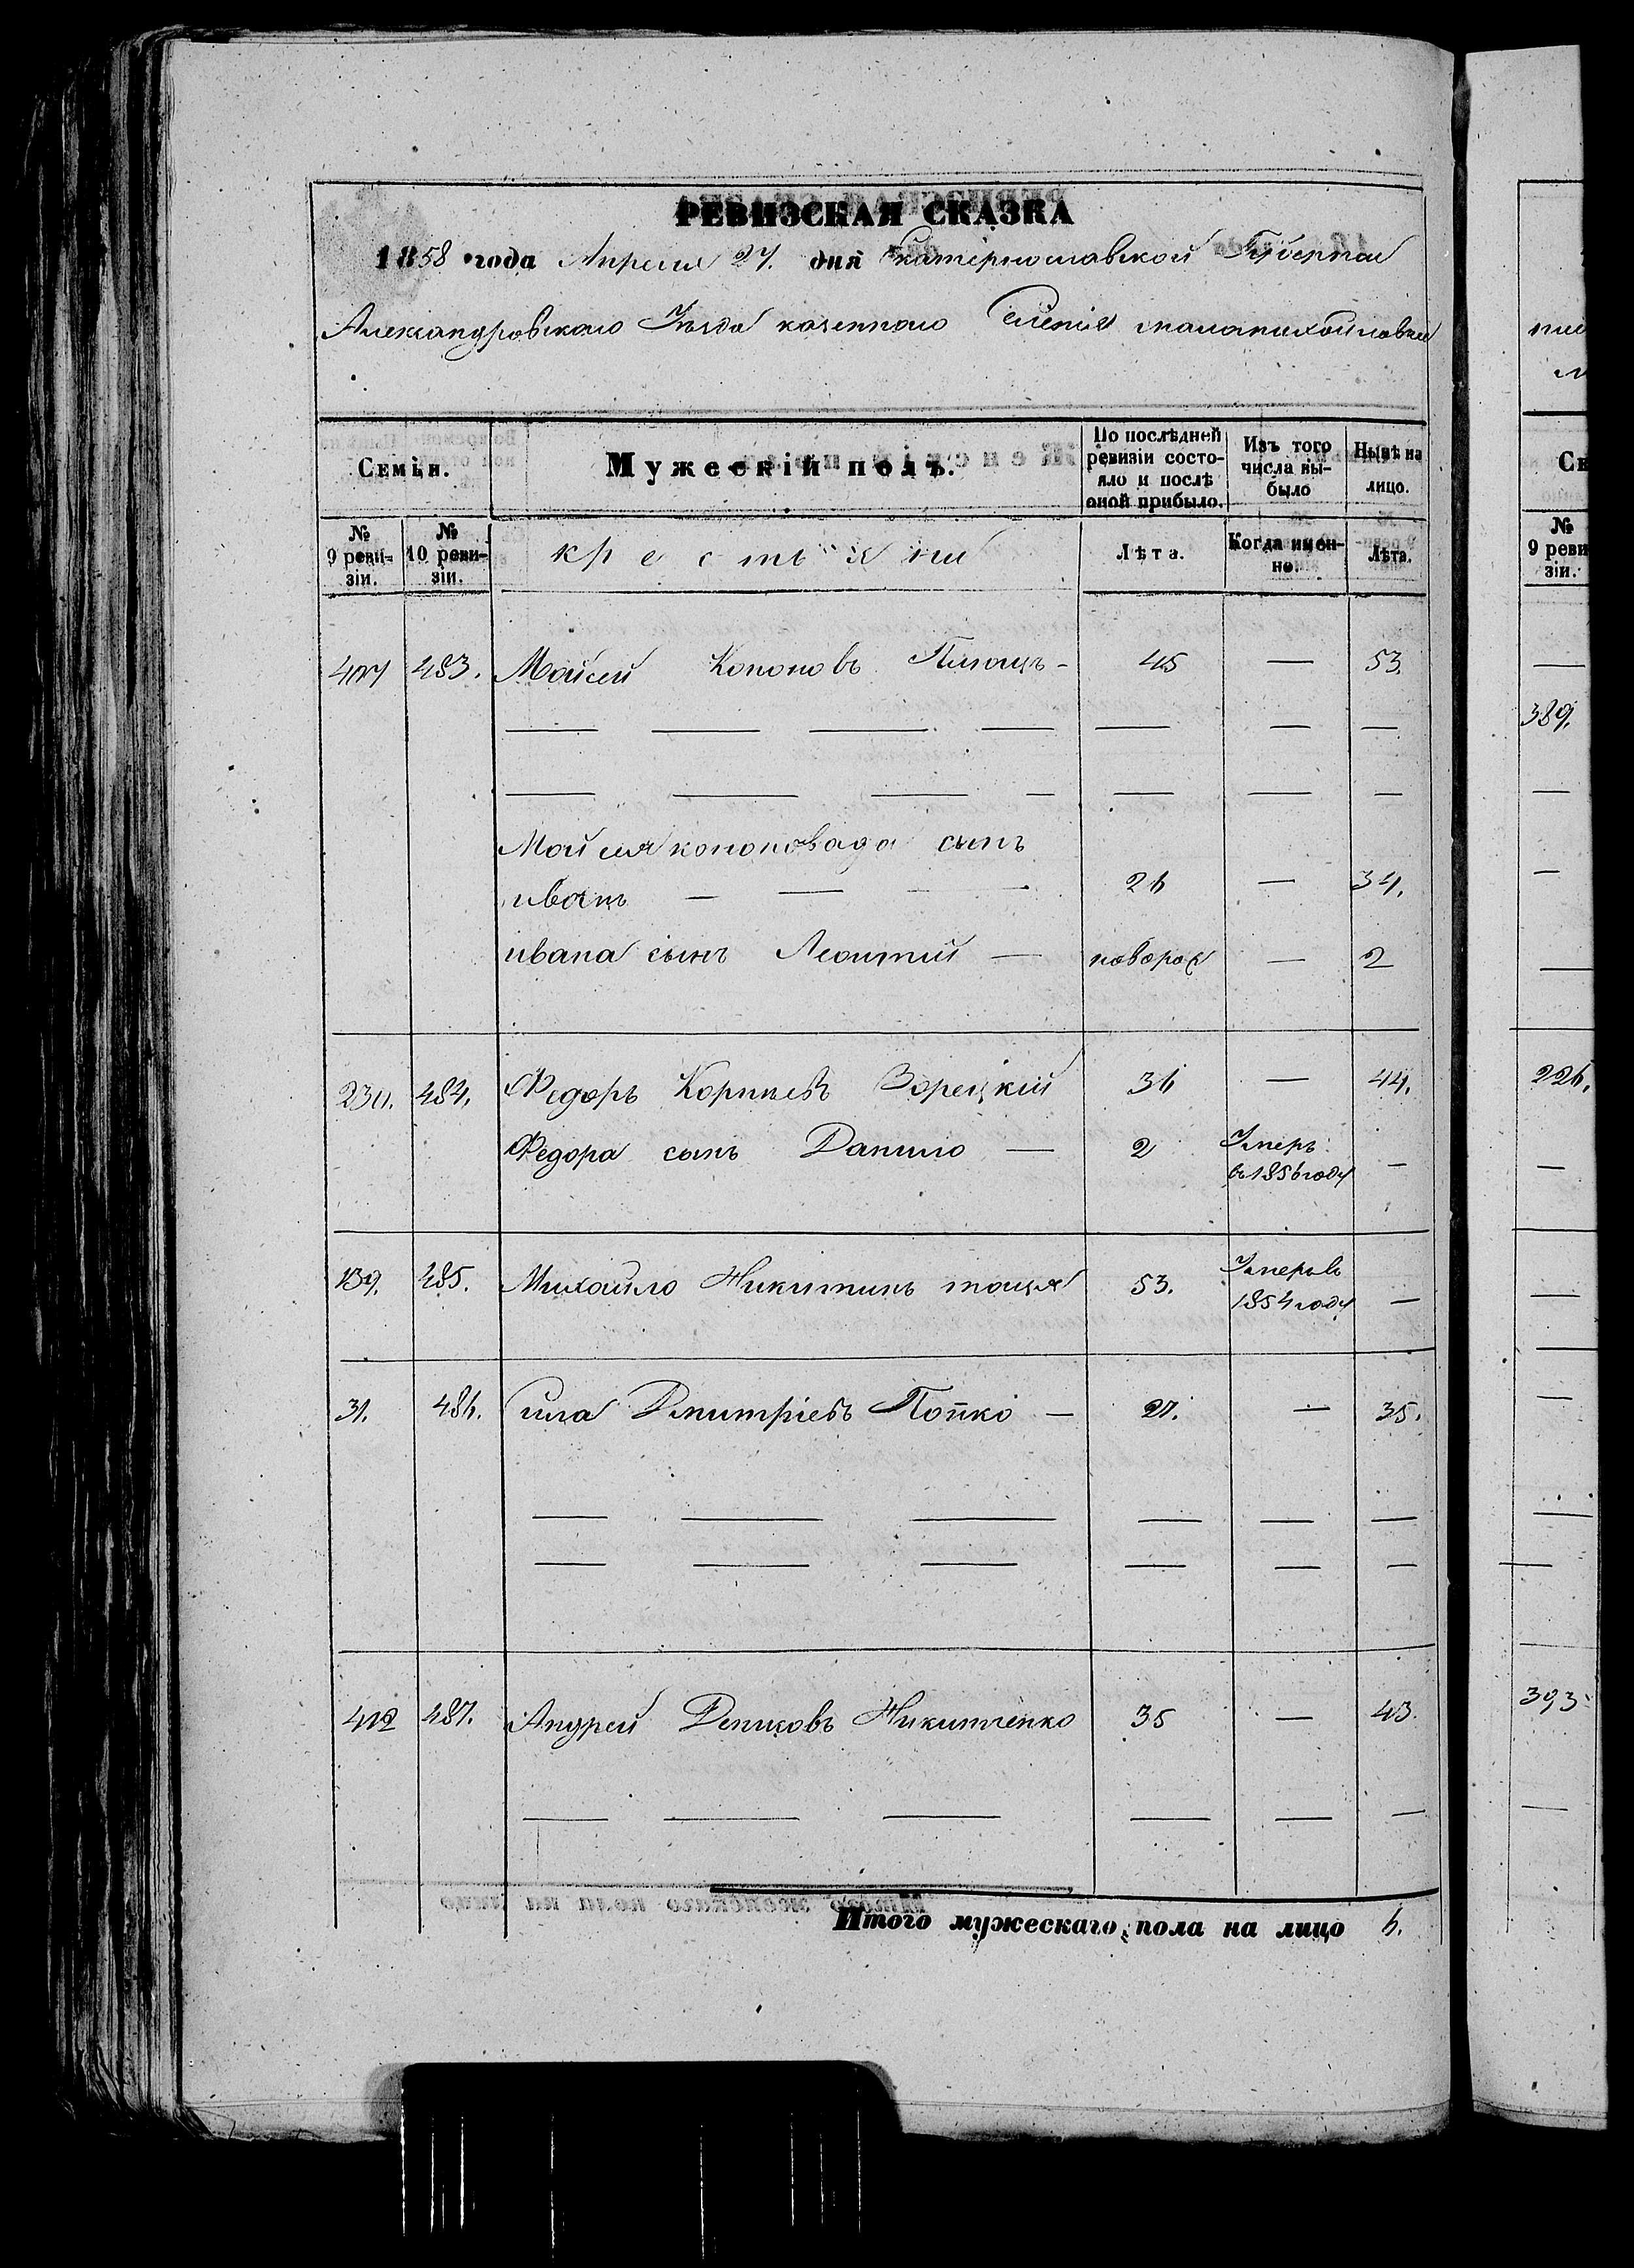 РЕВИЗСКАЯ СКАЗКА
1858 года Апреля 27. дня Екатеринославской Губернии
Александровского Уезда казенного Селения малаMихайловки
Семьи. Мужескій полъ. По послѣдней ревизіи состояло и послѣ оной прибыло. Изъ того числа выбыло Нынѣ на лицо.
№ 9 ревизіи. № 10 ревизіи. крестьяни Лѣта. Когда именно. Лѣта.
483. Мойсей Кононовъ 45 — 53.
Мойсея кононовада сынъ
иванъ — 26 — 34.
ивана сынъ Леонтий — новорож — 2
230. 484. Федоръ Корнѣевъ Зорецкій 36 — 44.
Федора сынъ Данило — 2 Умеръ
въ 1856 году —
139. 485. Михайло Никитинъ тоцкя 53. Умеръ в
1854 году —
31. 486. Сила Дмитріевъ Попко — 27. — 35.
412 487. Андрей Денисовъ Никитченко 35 — 43.
Итого мужескаго пола на лицо 6.
Се
№ 9 реви
зіи.
389.
226.
393